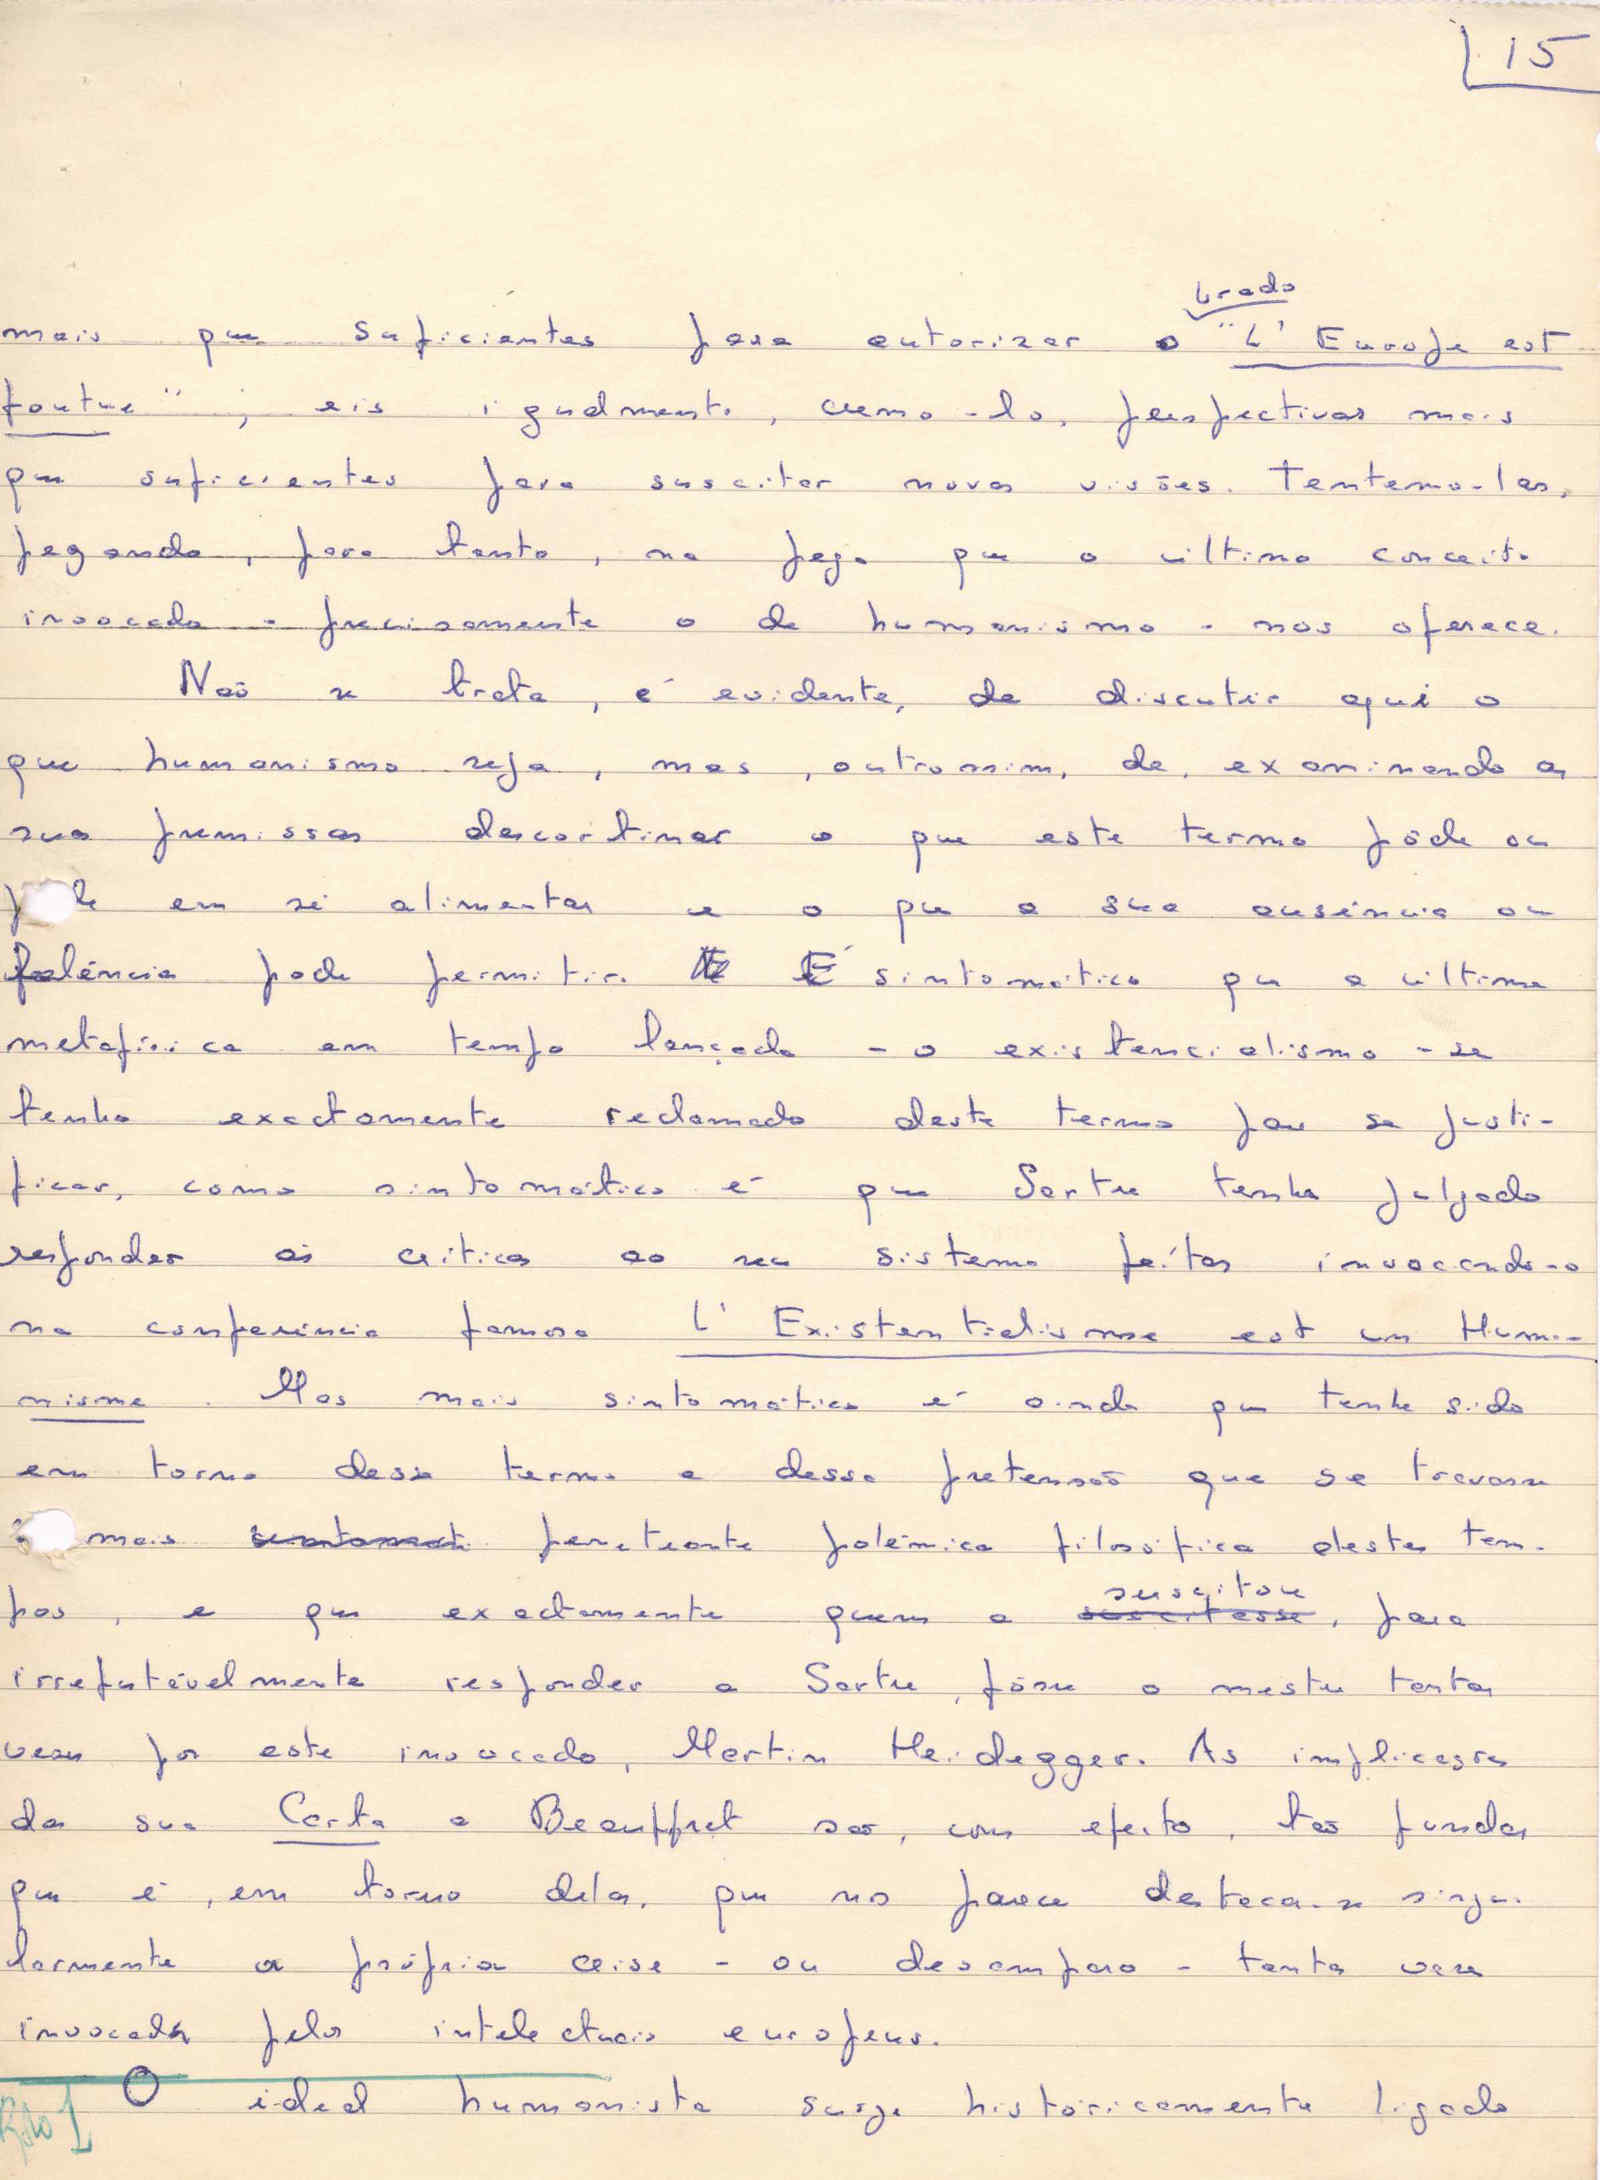 15
brado
mais que suficientes para autorizar o "L'Europe est
foutue"; eis igualmente, cremo-lo, perspectivas mais
que suficientes para suscitar novas visões. Tentemo-las,
pegando, para tanto, na pega que o último conceito
invocado - precisamente o de humanismo - nos oferece.
Não se trata, é evidente, de discutir aqui o
que humanismo seja, mas, outrossim, de, examinando as
suas premissas descortinar o que este termo pôde ou
pode em si alimentar e o que a sua ausência ou
falência pode permitir. É sintomático que a última
metafísica em tempo lançada - o existencialismo - se
tenha exactamente reclamado deste termo para se justi-
ficar, como sintomático é que Sartre tenha julgado
responder às críticas ao seu sistema feitas invocando-o
na conferência famosa L'Existentialisme est un Huma-
nisme. Mas mais sintomático é ainda que tenha sido
em torno desse termo e dessa pretensão que se travasse
a mais penetrante polémica filosófica destes tem-
suscitou
pos, e que exactamente quem a suscitasse, para
irrefutàvelmente responder a Sartre, fôsse o mestre tantas
vezes por este invocado, Martin Heidegger. As implicações
da sua Carta a Beauffret são, com efeito, tão fundas
que é, em torno delas, que nos parece destacar-se singu-
larmente a própria crise - ou desamparo - tantas vezes
invocada pelos intelectuais europeus.
O ideal humanista surge històricamente ligado